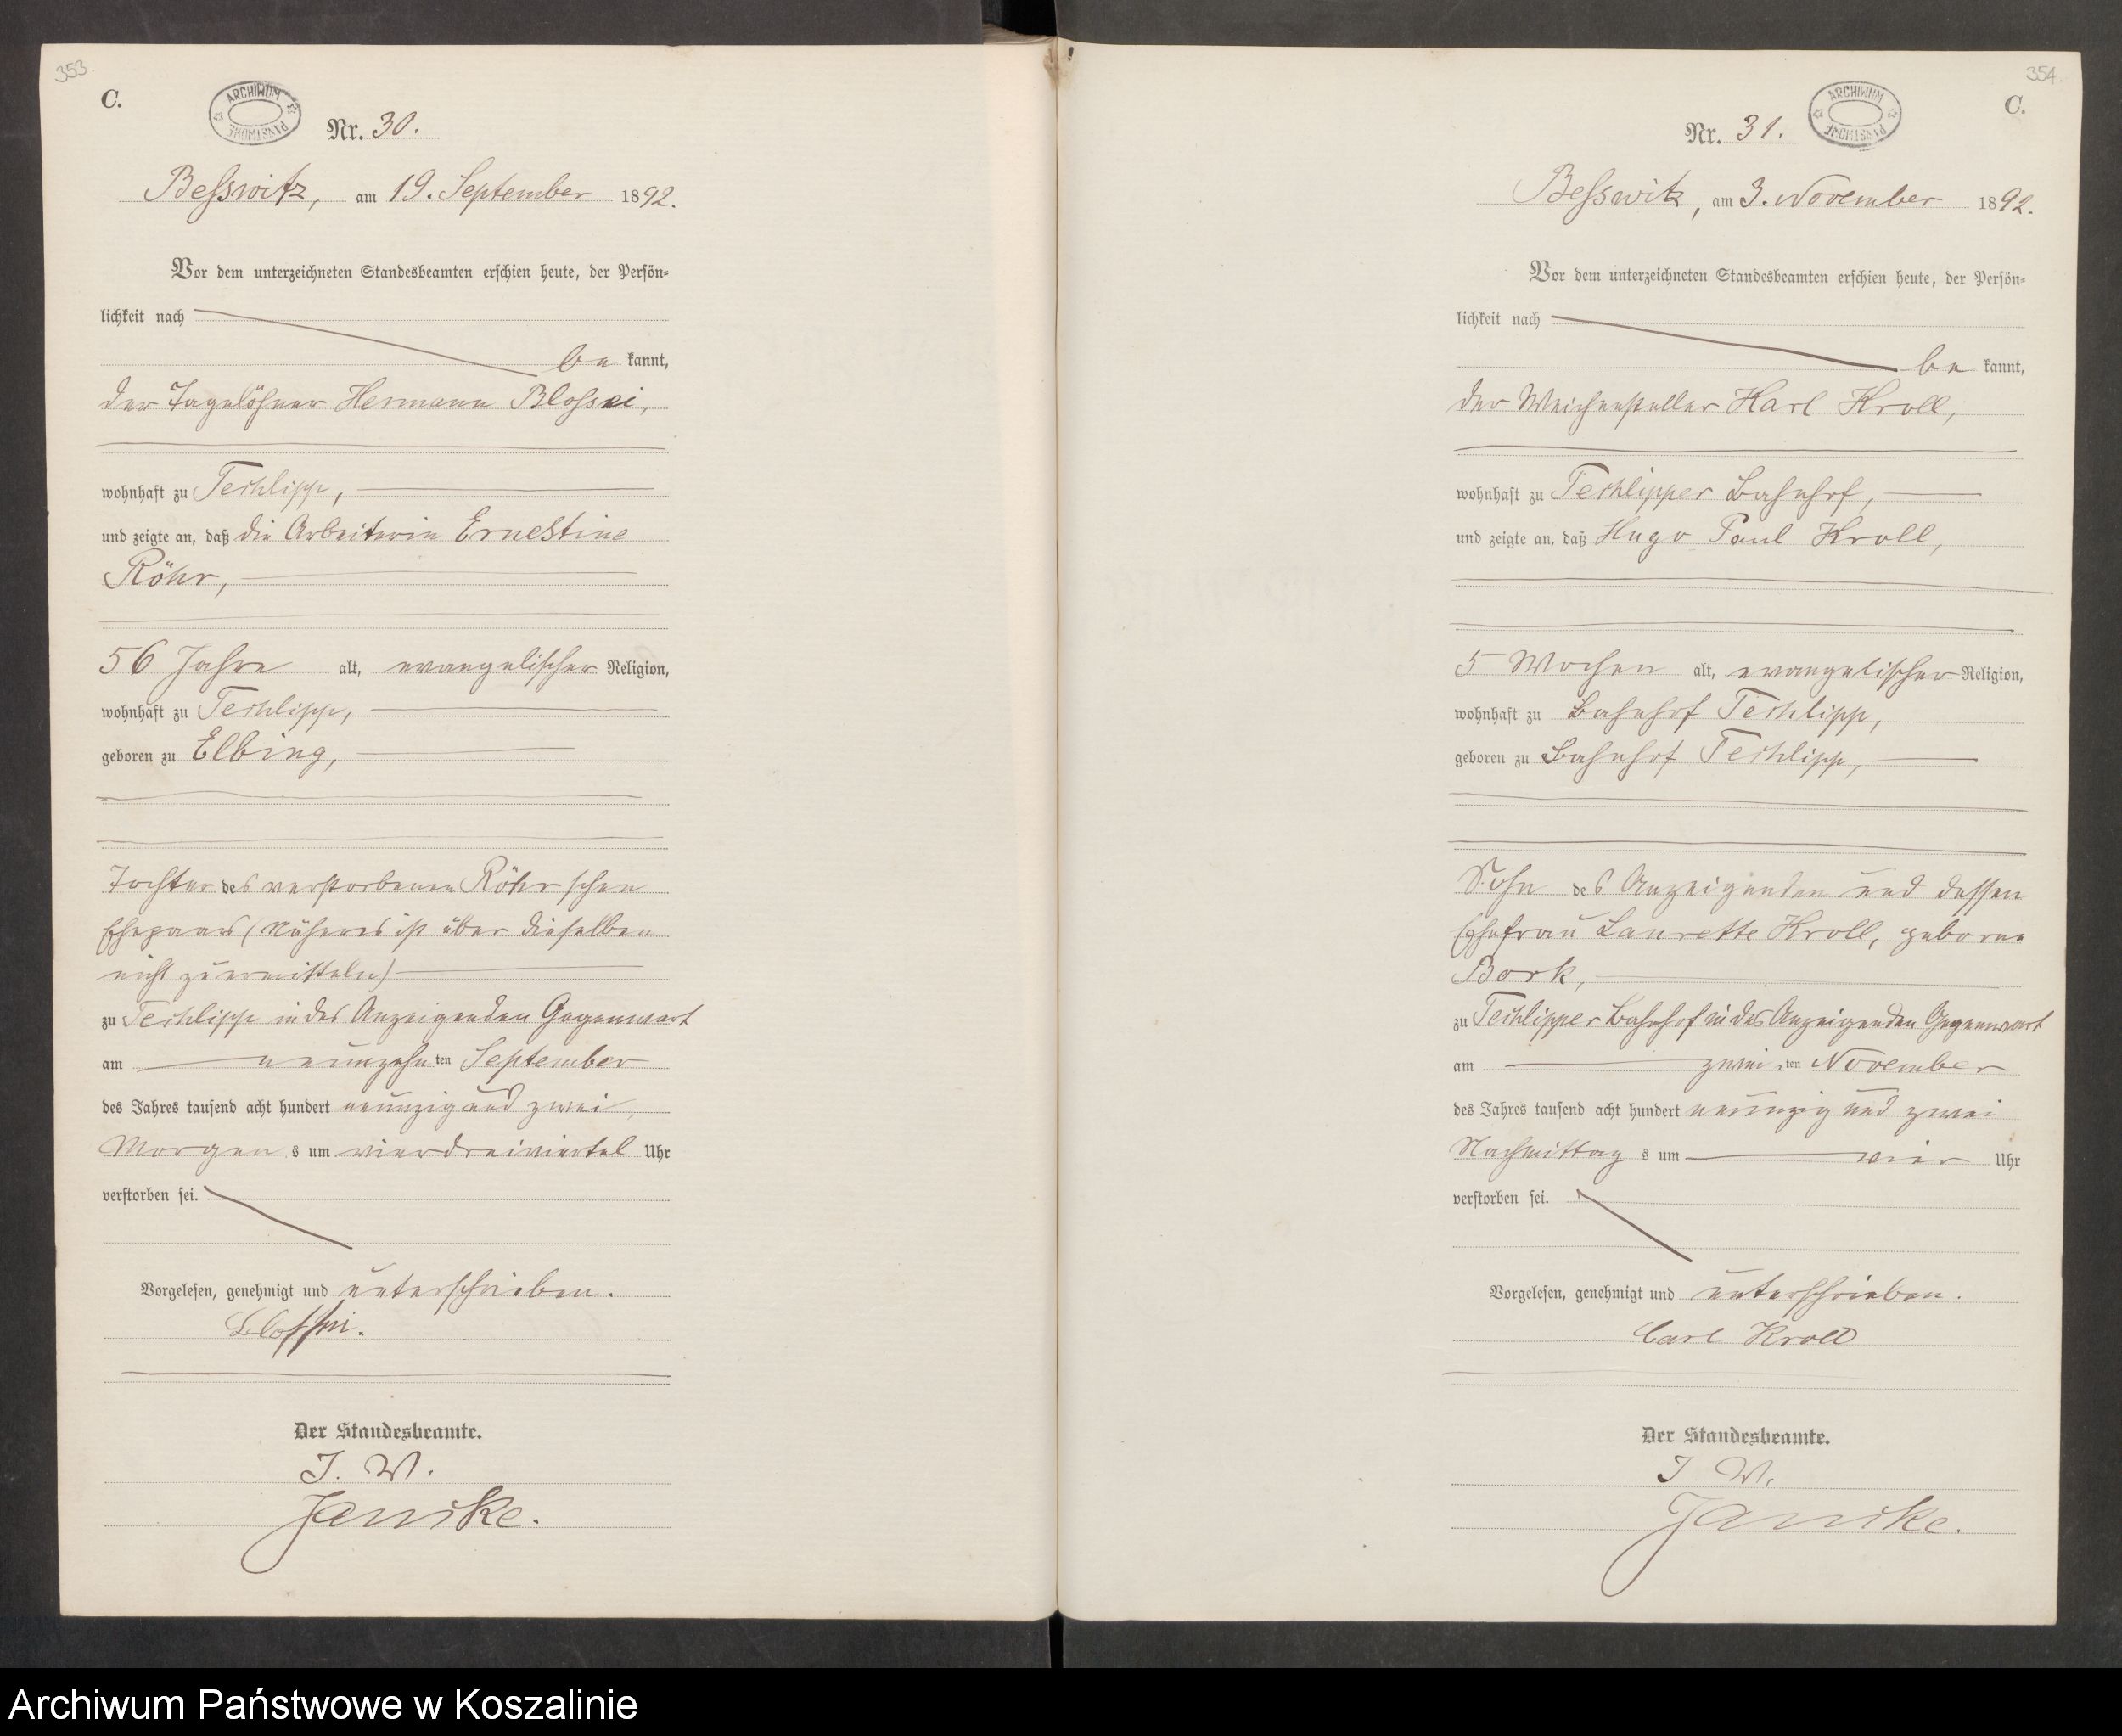 353.
C.
ARCHIWUM PAŃSTWOWE
Nr. 30.
Beßwitz, am 19. September 1892.
Vor dem unterzeichneten Standesbeamten erschien heute, der Persön-
lichkeit nach
be kannt,
der Tagelöhner Hermann Bloßei,
wohnhaft zu Techlipp,
und zeigte an, daß die Arbeiterin Ernestine
Röhr,
56 Jahre alt, evangelischer Religion,
wohnhaft zu Techlipp,
geboren zu Elbing,
Tochter des verstorbenen Röhr'schen
Ehepaars (Näheres ist über dieselben
nicht zu ermitteln)
zu Techlipp in des Anzeigenden Gegenwart
am neunzehn ten September
des Jahres tausend acht hundert neunzig und zwei,
Morgen s um vierdreiviertel Uhr
verstorben sei.
Vorgelesen, genehmigt und unterschrieben.
Der Standesbeamte.
J. W.
Janike.
354.
C.
ARCHIWUM PAŃSTWOWE
Nr. 31.
Beßwitz, am 3. November 1892.
Vor dem unterzeichneten Standesbeamten erschien heute, der Persön-
lichkeit nach
be kannt,
der Weichensteller Karl Kroll,
wohnhaft zu Techlipper Bahnhof,
und zeigte an, daß Hugo Paul Kroll,
5 Wochen alt, evangelischer Religion,
wohnhaft zu Bahnhof Techlipp,
geboren zu Bahnhof Techlipp,
Sohn des Anzeigenden und dessen
Ehefrau Laurette Kroll, geborne
Bork,
zu Techlipper Bahnhof in des Anzeigenden Gegenwart
am zwei ten November
des Jahres tausend acht hundert neunzig und zwei
Nachmittag s um vier Uhr
verstorben sei.
Vorgelesen, genehmigt und unterschrieben.
Carl Kroll
Der Standesbeamte.
J. W.
Janike.
Archiwum Państwowe w Koszalinie